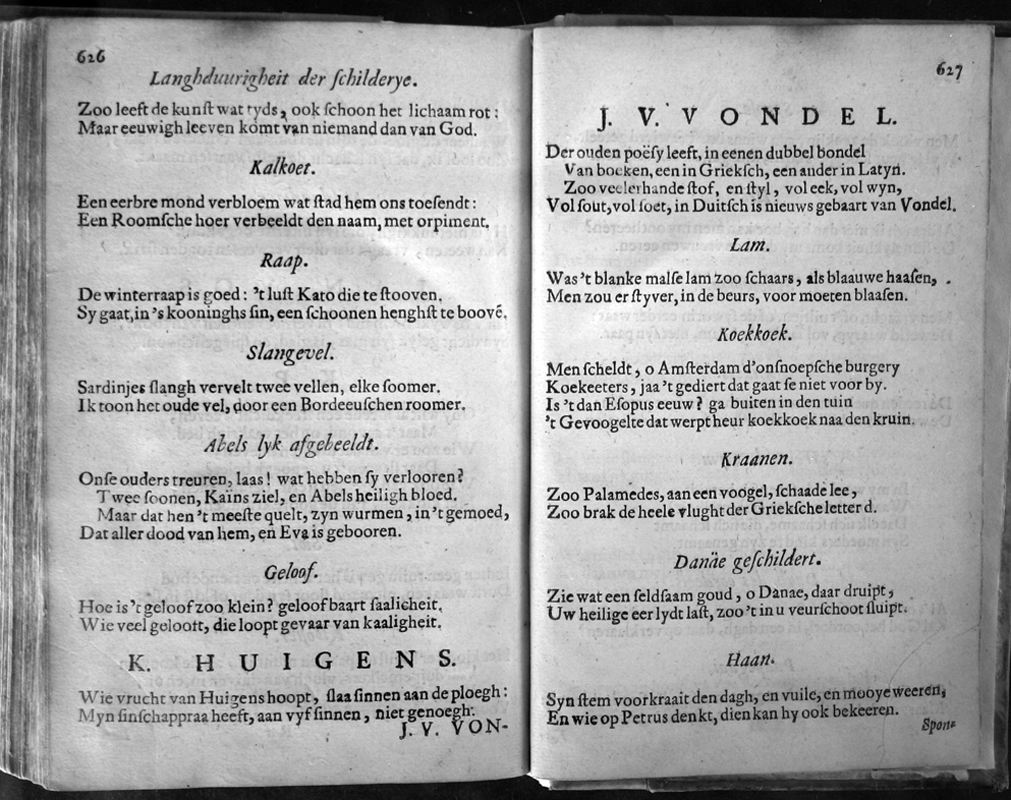 626
Langhduurigheit der ſchilderye.
Zoo leeft de kunſt wat tyds, ook ſchoon het lichaam rot:
Maar eeuwigh leeven komt van niemand dan van God.
Kalkoet.
Een eerbre mond verbloem wat ſtad hem ons toeſendt:
Een Roomſche hoer verbeeldt den naam, met orpiment.
Raap.
De winterraap is goed: 't luſt Kato die te ſtooven.
Sy gaat, in 's kooninghs ſin, een ſchoonen henghſt te boovē.
Slangevel.
Sardinjes ſlangh vervelt twee vellen, elke ſoomer.
Ik toon het oude vel, door een Bordeeuſchen roomer.
Abels lyk afgebeeldt.
Onſe ouders treuren, laas! wat hebben ſy verlooren?
Twee ſoonen, Kaïns ziel, en Abels heiligh bloed.
Maar dat hen 't meeſte quelt, zyn wurmen, in 't gemoed,
Dat aller dood van hem, en Eva is gebooren.
Geloof.
Hoe is 't geloof zoo klein? geloof baart ſaalicheit.
Wie veel gelooft, die loopt gevaar van kaaligheit.
K. HUIGENS.
Wie vrucht van Huigens hoopt, ſlaa ſinnen aan de ploegh:
Myn ſinſchappraa heeft, aan vyf ſinnen, niet genoegh.
J. V. VON-
627
J. V. VONDEL.
Der ouden poëſy leeft, in eenen dubbel bondel
Van boeken, een in Griekſch, een ander in Latyn.
Zoo veelerhande ſtof, en ſtyl, vol eek, vol wyn,
Vol ſout, vol ſoet, in Duitſch is nieuws gebaart van Vondel.
Lam.
Was 't blanke malſe lam zoo ſchaars, als blaauwe haaſen,
Men zou er ſtyver, in de beurs, voor moeten blaaſen.
Koekkoek.
Men ſcheldt, o Amſterdam d'onſnoepſche burgery
Koekeeters, jaa 't gediert dat gaat ſe niet voor by.
Is 't dan Eſopus eeuw? ga buiten in den tuin
't Gevoogelte dat werpt heur koekkoek naa den kruin.
Kraanen.
Zoo Palamedes, aan een voogel, ſchaade lee,
Zoo brak de heele vlught der Griekſche letter d.
Danäe geſchildert.
Zie wat een ſeldſaam goud, o Danae, daar druipt,
Uw heilige eer lydt laſt, zoo 't in u veurſchoot ſluipt.
Haan.
Syn ſtem voorkraait den dagh, en vuile, en mooye weeren,
En wie op Petrus denkt, dien kan hy ook bekeeren.
Spon-